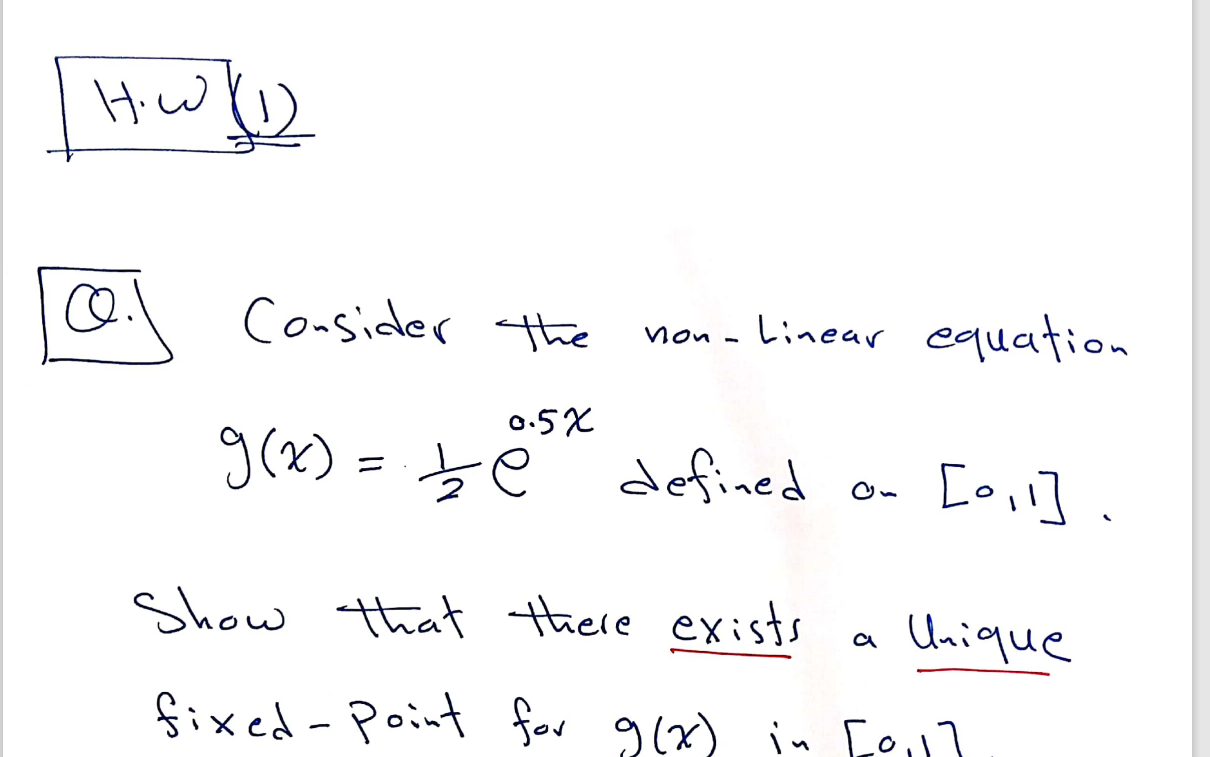 H.W (1)
Q.) Consider the non-Linear equation
g(x) = 1/2 e^0.5x defined on [0,1].
Show that there exists a Unique
fixed-Point for g(x) in [0,1]